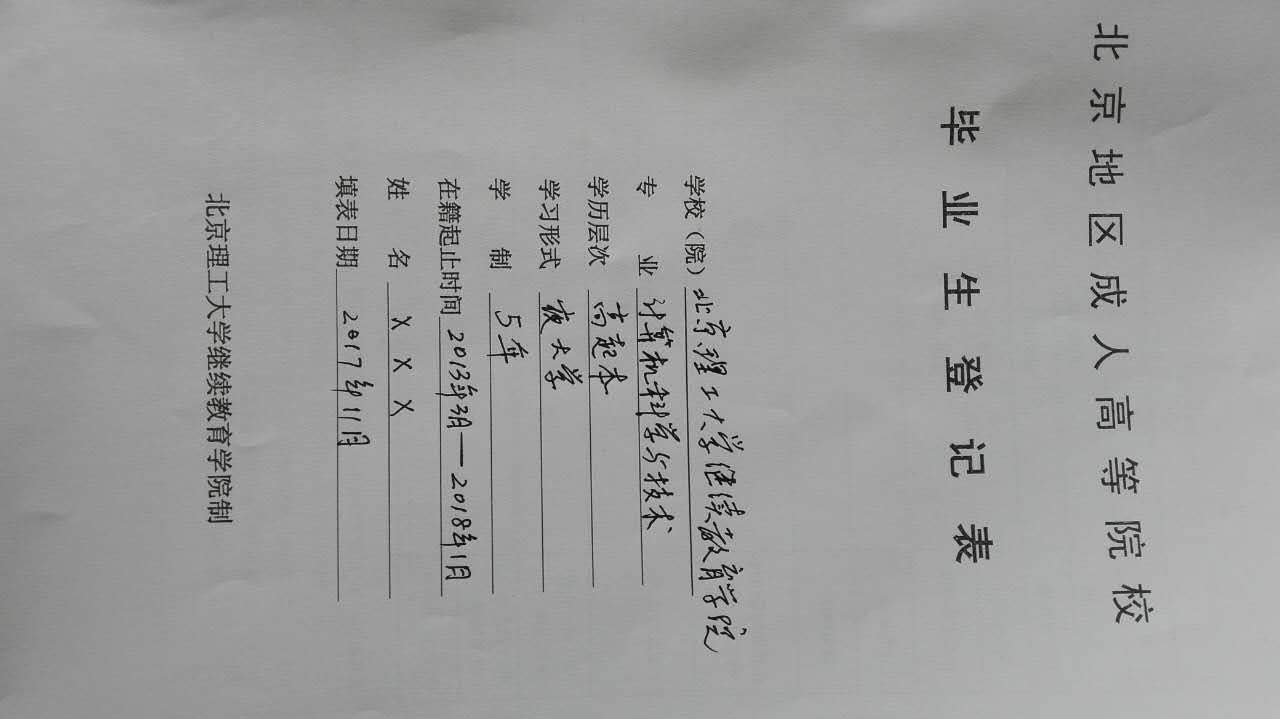 北京地区成人高等院校
毕业生登记表
学校（院）北京理工大学继续教育学院
专业 计算机科学与技术
学历层次 高起本
学习形式 夜大学
学制 5年
在籍起止时间 2013年3月—2018年1月
姓名 X X X
填表日期 2017年11月
北京理工大学继续教育学院制